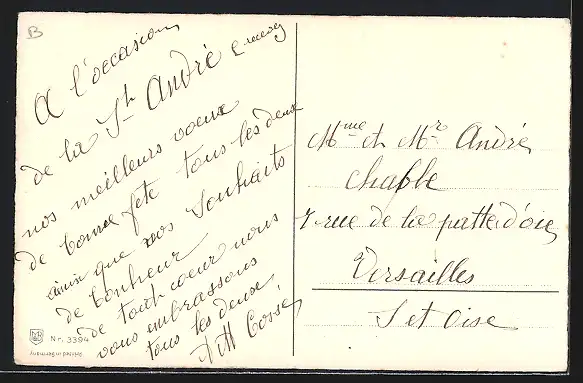 B
A l'occasion
de la St André Envoy
nos meilleurs voeux
de bonne fête tous les deux
ainsi que nos Souhaits
de bonheur
de tout coeur nous
vous embrassons
tous les deux
Cossé
Nr. 3394
Printed in Germany
Mme et Mr André
Chable
7 rue de la patte d'oie
Versailles
S et Oise